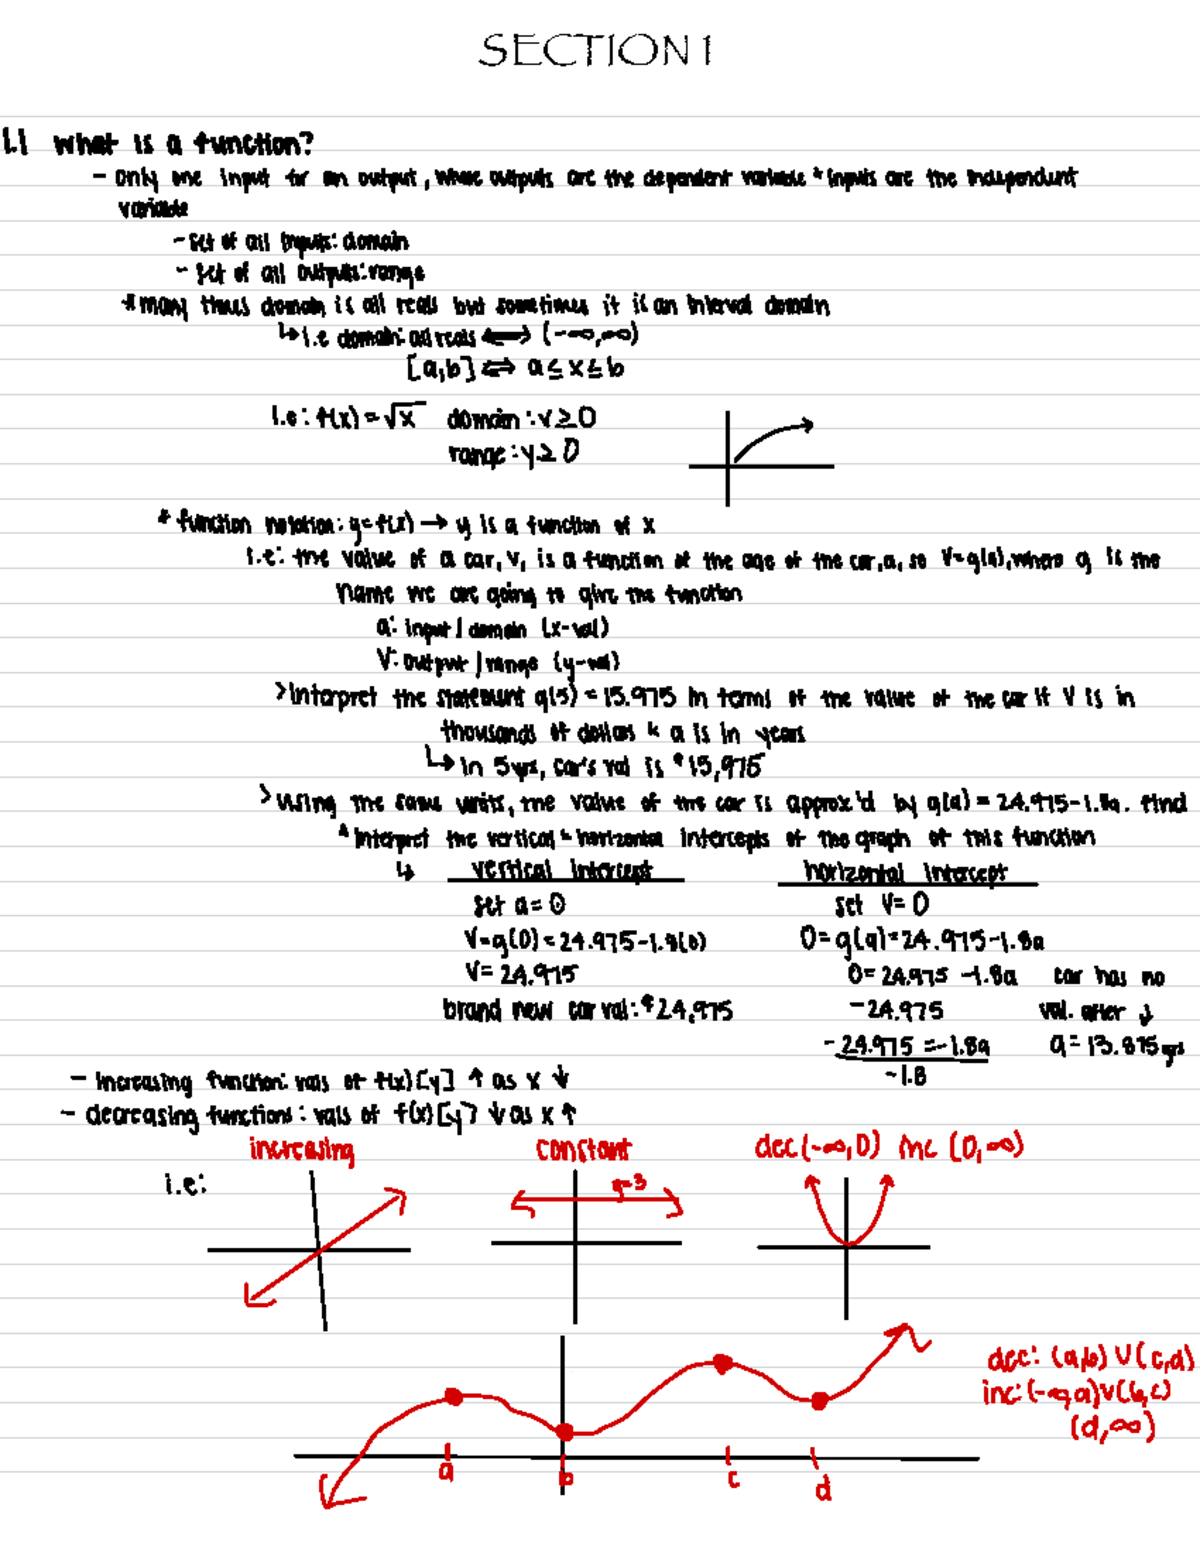 SECTION 1
1.1 What is a function?
- Only one input for an output, where outputs are the dependent variable & inputs are the independent
variable
- set of all inputs: domain
- set of all outputs: range
* many times domain is all reals but sometimes it is an interval domain
↳ i.e domain: all reals ⟺ (-∞,∞)
[a,b] ⟺ a ≤ x ≤ b
i.e: f(x) = √x domain: x ≥ 0
range: y ≥ 0
* function notation: y = f(x) → y is a function of x
i.e: the value of a car, V, is a function of the age of the car, a, so V=g(a), where g is the
name we are going to give the function
a: input / domain (x-val)
V: output / range (y-val)
> Interpret the statement g(5) = 15.975 in terms of the value of the car if V is in
thousands of dollars & a is in years
↳ in 5yrs, car's val is $15,975
> Using the same units, the value of the car is approx'd by g(a) = 24.975-1.8a. find
* Interpret the vertical & horizontal intercepts of the graph of this function
↳ vertical intercept horizontal intercept
set a = 0 set V = 0
V=g(0) = 24.975-1.8(0) 0 = g(a) = 24.975-1.8a
V = 24.975 0 = 24.975 -1.8a car has no
brand new car val: $24,975 -24.975 val. after ↓
-24.975 = -1.8a a = 13.875 yrs
-1.8
- Increasing function: vals of f(x) [y] ↑ as x ↓
- decreasing functions: vals of f(x) [y] ↓ as x ↑
increasing constant dec (-∞,0) inc (0,∞)
i.e: y=3
dec: (a,b) U (c,d)
inc: (-∞,a) U (b,c)
(d,∞)
a b c d